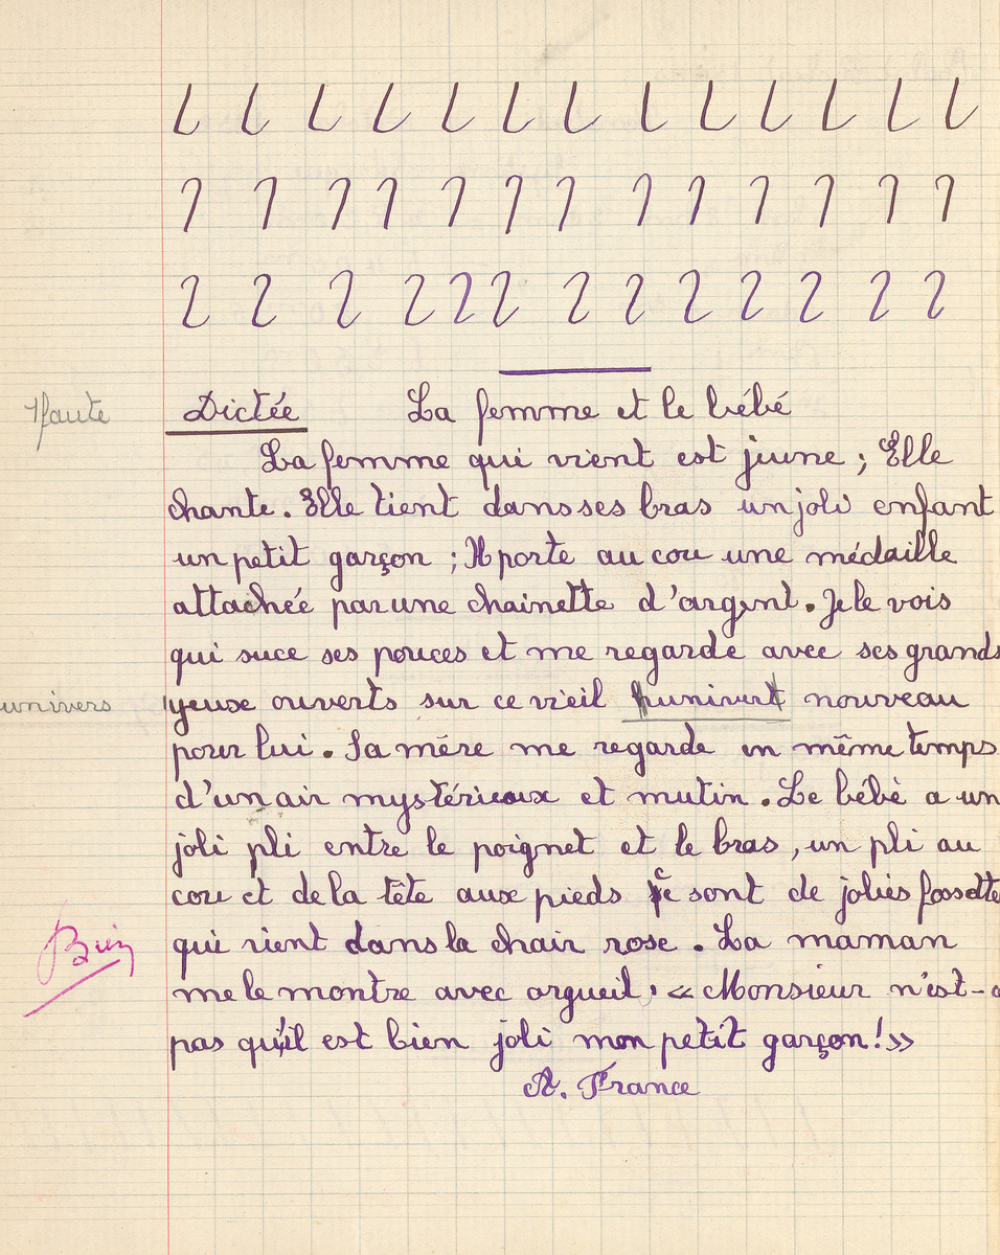 1 faute Dictée La femme et le bébé
La femme qui vient est jeune ; Elle
chante. Elle tient dans ses bras un joli enfant
un petit garçon ; Il porte au cou une médaille
attachée par une chainette d'argent. Je le vois
qui suce ses pouces et me regarde avec ses grands
univers yeux ouverts sur ce vieil nouveau
pour lui. Sa mère me regarde en même temps
d'un air mystérieux et mutin. Le bébé a un
joli pli entre le poignet et le bras, un pli au
cou et de la tête aux pieds ce sont de jolies fossette
Bien qui rient dans la chair rose. La maman
me le montre avec orgueil. « Monsieur n'est-c
pas qu'il est bien joli mon petit garçon ! »
A. France